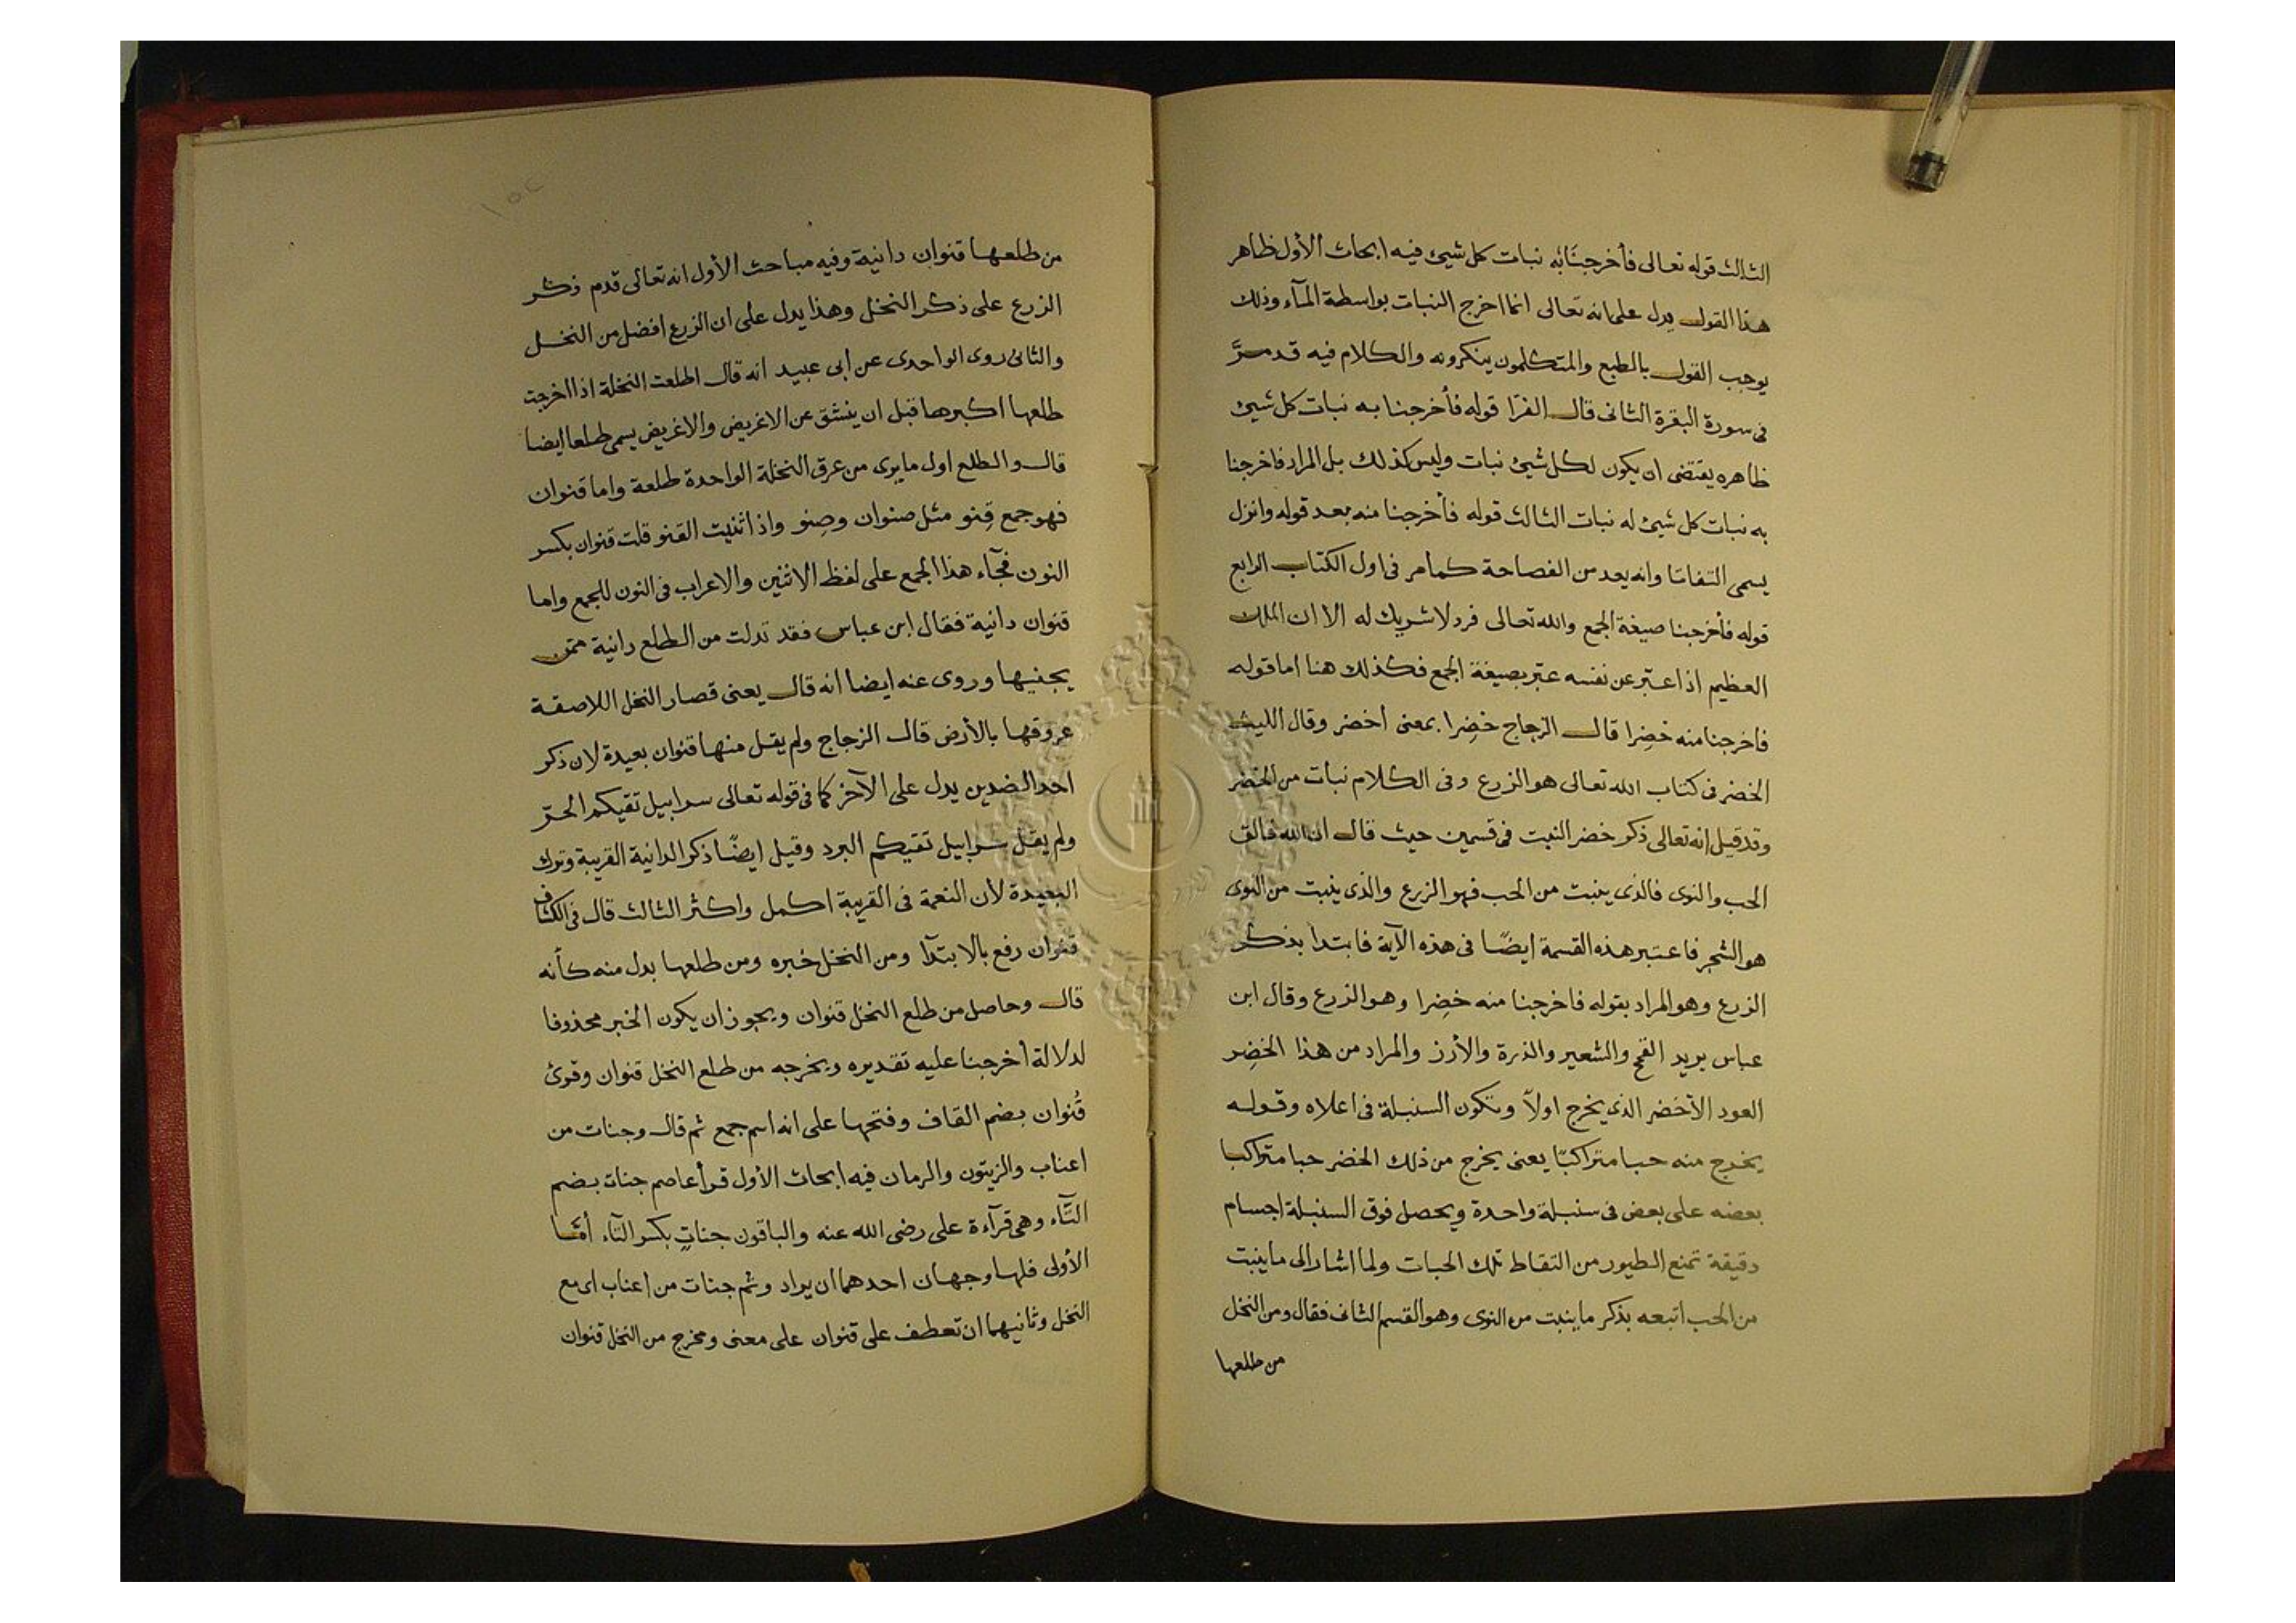 الثالث قوله تعالى فأخرجنَابُه نبات كل شيئ فيه ابحاث الأول ظاهر
هذا القول يدل على انه تعالى انما اخرج النبات بواسطة المآء وذلك
يوجب القول بالطبع والمتكلمون ينكرونه والكلام فيه قد مرَّ
فى سورة البقرة الثانى قال الفرّا قوله فأخرجنا به نبات كل شيئ
ظاهره يقتضى ان يكون لكل شيئ نبات وليس كذلك بل المراد فاخرجنا
به نبات كل شيئ له نبات الثالث قوله فأخرجنا منه بعد قوله وانزل
يسمى التفاتا وانه يعد من الفصاحة كما مر فى اول الكتاب الرابع
قوله فأخرجنا صيغة الجمع والله تعالى فرد لا شريك له الا ان الملك
العظيم اذا عبّر عن نفسه عبّر بصيغة الجمع فكذلك هنا اما قوله
فاخرجنا منه خضِرا قال الزجاج خضِرا بمعنى أخضر وقال الليث
الخضر فى كتاب الله تعالى هو الزرع وفى الكلام نبات من الخضر
وقد قيل انه تعالى ذكر خضر النبت فى قسمين حيث قال ان الله فالق
الحب والنوى فالذى ينبت من الحب فهو الزرع والذى ينبت من النوى
هو الشجر فاعتبر هذه القسمة ايضًا فى هذه الآية فابتدا بذكر
الزرع وهو المراد بقوله فاخرجنا منه خضِرا وهو الزرع وقال ابن
عباس يريد القمح والشعير والذرة والأرز والمراد من هذا الخضِر
العود الأخضر الذى يخرج اولاً وتكون السنبلة فى اعلاه وقوله
يخرج منه حبا متراكبّا يعنى يخرج من ذلك الخضر حبا متراكبا
بعضه على بعض فى سنبلة واحدة ويحصل فوق السنبلة اجسام
دقيقة تمنع الطيور من التقاط تلك الحبات ولما اشار الى ما ينبت
من الحب اتبعه بذكر ما ينبت من النوى وهو القسم الثانى فقال ومن النخل
من طلعها
من طلعها قنوان دانية وفيه مباحث الأول انه تعالى قدم ذكر
الزرع على ذكر النخل وهذا يدل على ان الزرع افضل من النخل
والثانى روى الواحدى عن ابى عبيد انه قال اطلعت النخلة اذا اخرجت
طلعها اكبرها قبل ان ينشق عن الاغريض والاغريض يسمى طلعا ايضا
قال والطلع اول ما يرى من عرق النخلة الواحدة طلعة واما قنوان
فهو جمع قِنو مثل صنوان وصِنو واذا ثنيت القنو قلت قنوان بكسر
النون فجآء هذا الجمع على لفظ الاثنين والاعراب فى النون للجمع واما
قنوان دانية فقال ابن عباس فقد تدلت من الطلع دانية ممن
يجنيها وروى عنه ايضا انه قال يعنى قصار النخل اللاصقة
عروقها بالأرض قال الزجاج ولم يقل منها قنوان بعيدة لان ذكر
احد الضدين يدل على الآخر كما فى قوله تعالى سرابيل تقيكم الحرّ
ولم يقل سرابيل تقيكم البرد وقيل ايضًا ذكر الدانية القريبة وترك
البعيدة لأن النعمة فى القريبة اكمل واكثر الثالث قال فى الكشاف
قنوان رفع بالابتدآ ومن النخل خبره ومن طلعها بدل منه كأنه
قال وحاصل من طلع النخل قنوان ويجوز ان يكون الخبر محذوفا
لدلالة أخرجنا عليه تقديره ويخرجه من طلع النخل قنوان وقرئ
قُنوان بضم القاف وفتحها على انه اسم جمع ثم قال وجنات من
اعناب والزيتون والرمان فيه ابحاث الأول قرأ عاصم جنات بضم
التّآء وهى قرآءة على رضى الله عنه والباقون جناتٍ بكسر التآء أمّا
الأولى فلها وجهان احدهما ان يراد وثم جنات من اعناب اى مع
النخل وثانيهما ان تعطف على قنوان على معنى ومخرج من النخل قنوان